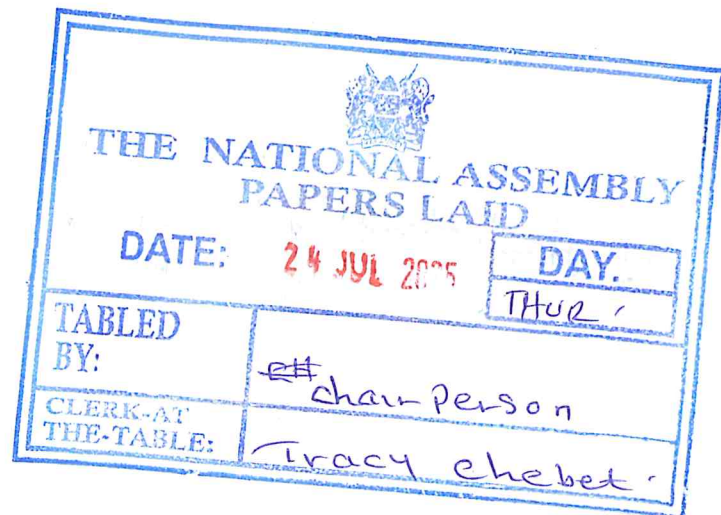 THE NATIONAL ASSEMBLY
PAPERS LAID
DATE: 24 JUL 2025 DAY.
THUR.
TABLED BY: Chairperson
CLERK-AT THE-TABLE: Tracy Chebet.